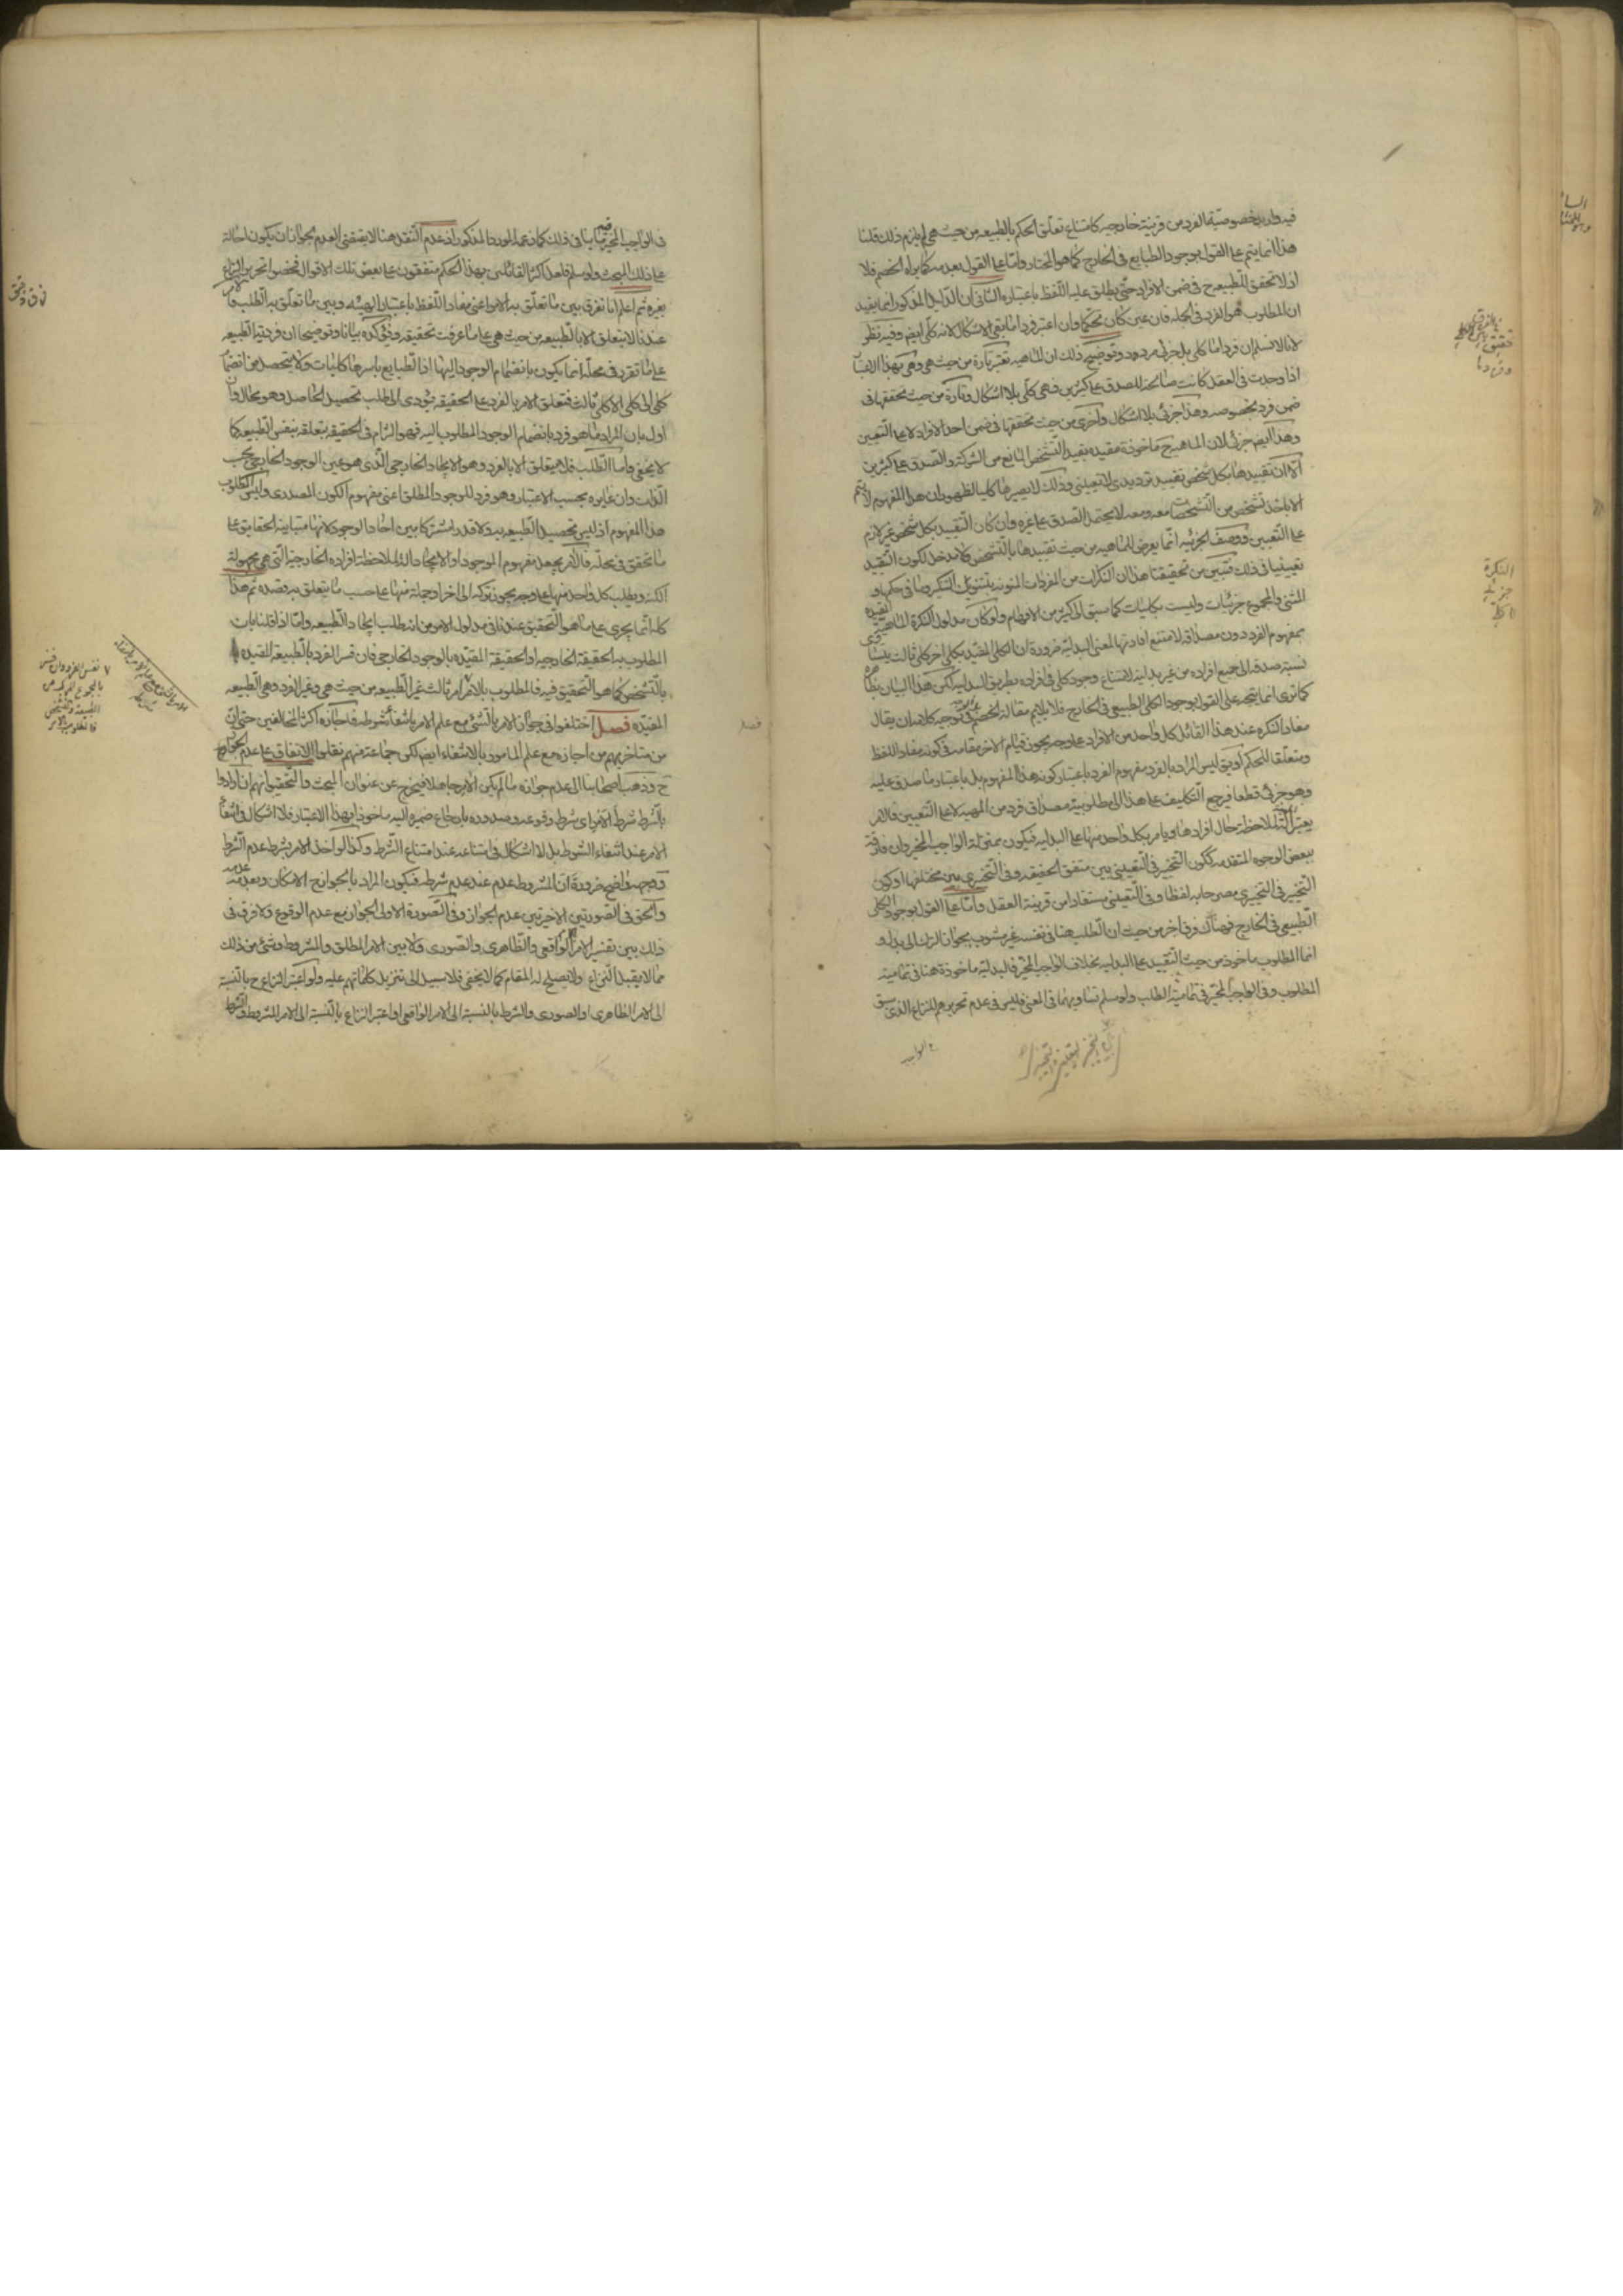 فيه واريد خصوصية الفرد من قرينة خارجيه كامتناع تعلق الحكم بالطبيعه من حيث هي لم يلزم ذلك قلنا
هذا انما يتم على القول بوجود الطبايع في الخارج كما هو المختار واما على القول بعدمه كما يراه الخصم فلا
اذ لا تحقق للطبيعة ح في ضمن الافراد حتى يطلق عليه اللفظ باعتباره الثاني ان الدليل المذكور انما يفيد
ان المطلوب هو الفرد في الجمله فان عين كان تحكما وان اعتبر فردا ما بقي الاشكال لانه كلي ايضا وفيه نظر
لانا لا نسلم ان فردا ما كلي بل جزئي مردود وتوضيح ذلك ان الماهيه تعتبر تارة من حيث هي وهي بهذا الاعتبار
اذا وجدت في العقل كانت صالحة للصدق على كثيرين فهي كلي بلا اشكال وتارة من حيث تحققها في
ضمن فرد بخصوصه وهذا جزئي بلا اشكال واخرى من حيث تحققها في ضمن احد الافراد لا على التعيين
وهذا ايضا جزئي لان الماهية ح ماخوذة مقيده بقيد التشخص المانع من الشركة والصدق على كثيرين
الا ان تقييدها بكل شخص تقييد ترديدي لا تعييني وذلك لا يصيرها كليا لظهور ان هذا المفهوم لا يتم
الا باخذ تشخص من التشخصات معه ومعه لا يحتمل الصدق على غيره وان كان التقييد بكل شخص غير لازم
على التعيين ووصف الجزئيه انما يعرض للماهيه من حيث تقييدها بالتشخص ولا مدخل لكون التقييد
تعيينيا في ذلك فتبين من تحقيقنا هذا ان النكرات من المفردات المنونه بتنوين التنكير وما في حكمها و
المثنى والمجموع جزئيات وليست بكليات كما سبق الى كثير من الاوهام ولو كان مدلول النكرة الماهية المقيده
بمفهوم الفرد دون مصداقه لامتنع افادتها لمعنى البدلية ضرورة ان الكلي المقيد بكلي اخر كلي ثالث يتساوى
نسبة صدقه الى جميع افراده من غير بدلية لامتناع وجود كلي في افراده بطريق البدلية لكن هذا البيان بظاهره
كما ترى انما يتجه على القول بوجود الكلي الطبيعي في الخارج فلا يلايم مقالة الخصم في توجيه كلامه ان يقال
مفاد النكره عند هذا القائل كل واحد من الافراد على وجه يجوز قيام الاخر مقامه في كونه مفاد اللفظ
ومتعلقا للحكم او يق ليس المراد بالفرد مفهوم الفرد باعتبار كونه هذا المفهوم بل باعتبار ما صدق عليه
وهو جزئي قطعا فمرجع التكليف على هذا الى مطلوبية مصداق فرد من المهية لا على التعيين فالامر
يعتبر الة لملاحظة حال افرادها ويامر بكل واحد منها على البدلية فيكون بمنزلة الواجب المخير وان فارقه
ببعض الوجوه المتقدمه ككون التخيير في التعييني بين متفق الحقيقه وفي التخييري بين مختلفها او كون
التخيير في التخييري مصرحا به لفظا وفي التعييني مستفادا من قرينة العقل واما على القول بوجود الكلي
الطبيعي في الخارج فهناك فرق اخر من حيث ان الطلب هنا في نفسه غير مشوب بجواز الترك الى بدل و
انما المطلوب ماخوذ من حيث التقييد على البدليه بخلاف الواجب المخير فالبدلية ماخوذة هنا في تمامية
المطلوب وفي الواجب المخير في تمامية الطلب ولو سلم تساويهما في المعنى فليس في عدم تحريرهم للنزاع الذي سبق
النكرة
في الواجب المخير فيه ما ينافي ذلك كما زعمه المورد المذكور اذ عدم النقل هنا لا يقتضي العدم لجواز ان يكون احالة
على ذلك المبحث ولو سلم فلعل اكثر القائلين بهذا الحكم متفقون على بعض تلك الاقوال فخصوا تحرير النزاع
بغيره ثم اعلم انا نفرق بين ما تعلق به الامر اعني مفاد اللفظ باعتبار الهيئه وبين ما تعلق به الطلب فالامر
عندنا لا يتعلق الا بالطبيعه من حيث هي على ما عرفت تحقيقه
على ما تقرر في محله انما يكون بانضمام الوجود اليها اذ الطبايع باسرها كليات ولا يتحصل من انضمام
كلي الى كلي الا كلي ثالث فتعلق الامر بالفرد على الحقيقه يؤدي الى طلب تحصيل الحاصل وهو محال وان
اول بان المراد ما هو فرد بانضمام الوجود المطلوب اليه فهو التزام في الحقيقه بتعلقه بنفس الطبيعه كما
لا يخفى واما الطلب فلا يتعلق الا بالفرد وهو الايجاد الخارجي الذي هو عين الوجود الخارجي بحسب
الذات وان غايره بحسب الاعتبار وهو فرد للوجود المطلق اعني مفهوم الكون المصدري وليس المطلوب
هذا المفهوم اذ ليس تحصيل الطبيعه به ولا قدرا مشتركا بين احاد الوجود لانها متباينة الحقايق على
ما تحقق في محله فالامر يجعل مفهوم الوجود او الايجاد الة لملاحظة افراده الخارجية التي هي مجهولة
الكنه ويطلب كل واحد منها على وجه يجوز تركه الى اخر او جملة منها على حسب ما يتعلق به قصده ثم هذا
كله انما يجري على ما هو التحقيق عندنا في مدلول الامر من انه طلب ايجاد الطبيعه واما اذا قلنا بان
المطلوب به الحقيقة الخارجيه او الحقيقة المقيده بالوجود الخارجي فان فسر الفرد بالطبيعة المقيده
بالتشخص كما هو التحقيق فيه فالمطلوب بالامر امر ثالث غير الطبيعه من حيث هي وغير الفرد وهي الطبيعه
المقيده فصل اختلفوا في جواز الامر بالشيء مع علم الامر بانتفاء شرطه فاجازه اكثر المخالفين حتى ان
من متاخريهم من اجازه مع علم المامور بالانتفاء ايضا لكن جماعة منهم نقلوا الاتفاق على عدم الجواز
ح وذهب اصحابنا الى عدم جوازه ما لم يكن الامر جاهلا فيخرج عن عنوان المبحث والتحقيق انهم ان ارادوا
بالشرط شرط الامر اي شرط وقوعه وصدوره بارجاع ضميره اليه ماخوذا بهذا الاعتبار فلا اشكال في انتفاء
الامر عند انتفاء الشرط بل لا اشكال في امتناعه عند امتناع الشرط وكذا لو اخذ الامر بشرط عدم الشرط
ووجهه واضح ضرورة ان المشروط عدم عند عدم شرطه فيكون المراد بالجواز ح الامكان وبعدمه عدمه
والحق في الصورتين الاخيرتين عدم الجواز وفي الصورة الاولى الجواز مع عدم الوقوع ولا فرق في
ذلك بين تفسير الامر الواقعي والظاهري والصوري ولا بين الامر المطلق والمشروط وشيء من ذلك
مما لا يقبل النزاع ولا يصلح له المقام كما لا يخفى فلا سبيل الى تنزيل كلماتهم عليه ولو اعتبر النزاع ح بالنسبة
الى الامر الظاهري او الصوري والشرط بالنسبة الى الامر الواقعي او اعتبر النزاع بالنسبة الى الامر المشروط والشرط
نفس الفرد وان فسر
بالمجموع المركب من
الطبيعة والتشخص
فالمطلوب بالامر
فصل